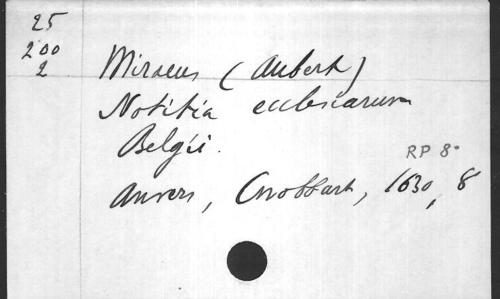 25
200
2
Miraeus (Aubert)
Notitia ecclesiarum
Belgii.
RP 8°
Anvers, Cnobbart, 1630, 8